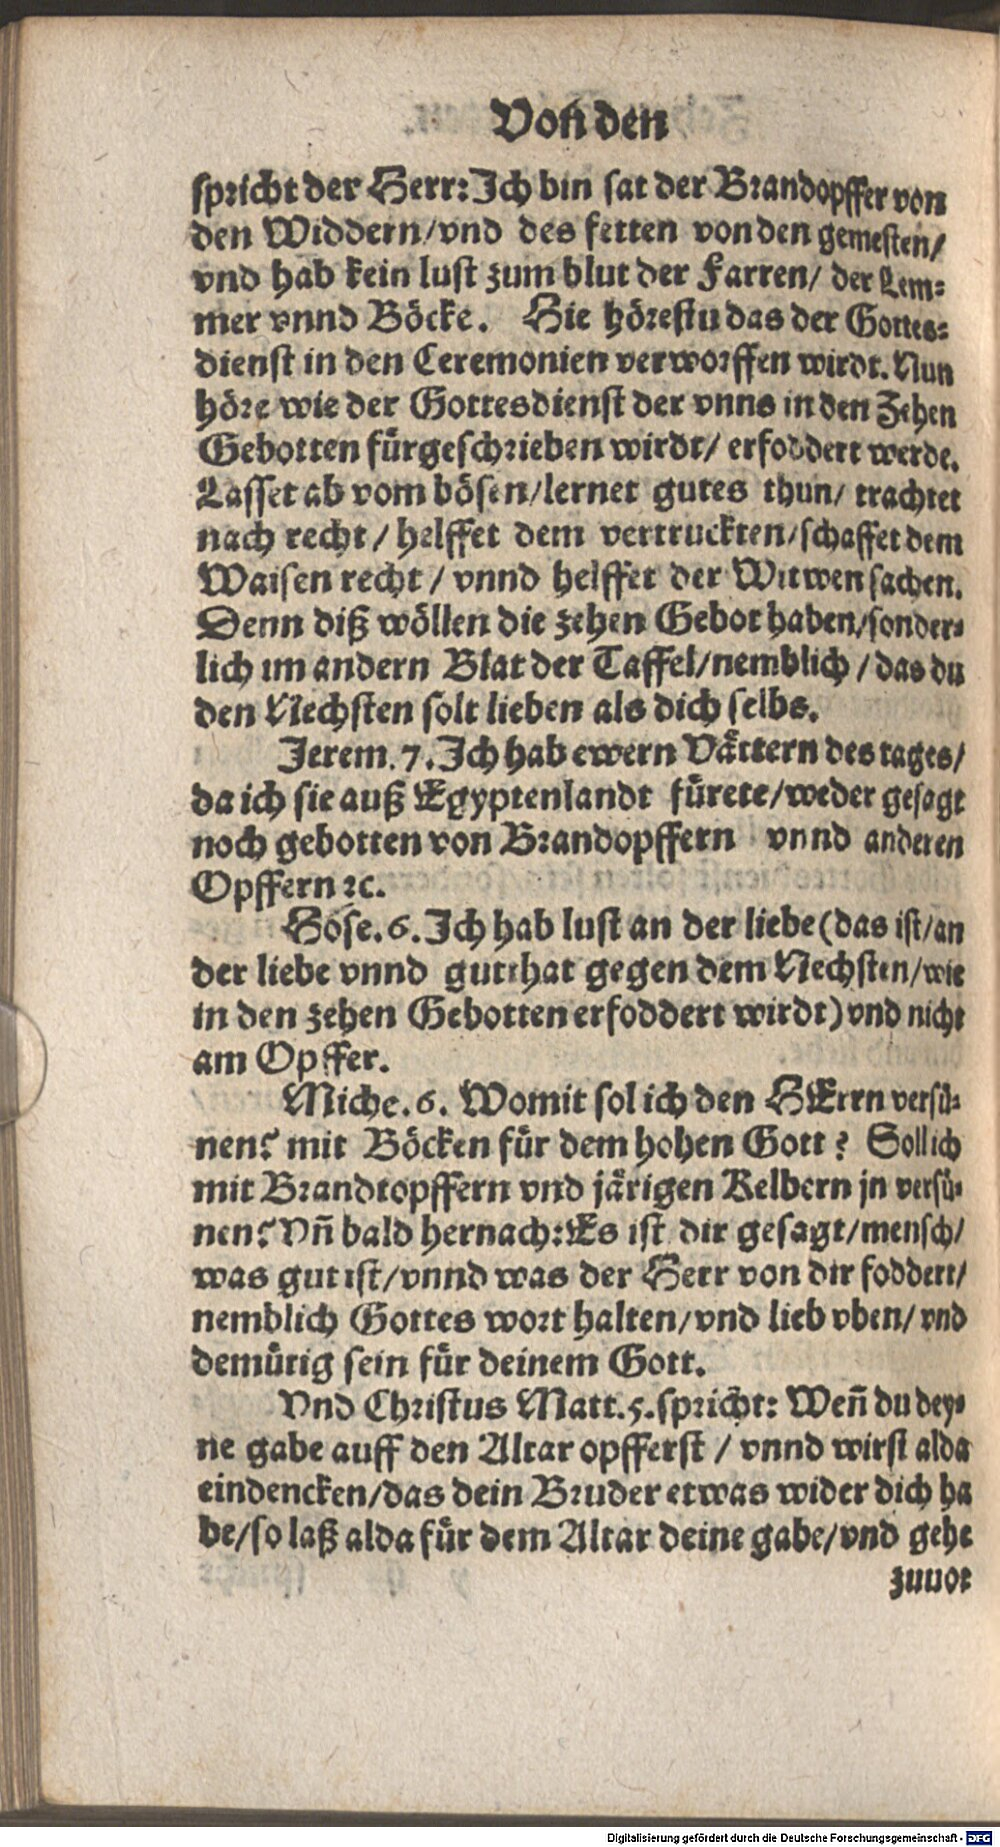 Von den
spricht der Herr: Ich bin sat der Brandopffer von
den Widdern/vnd des fetten von den gemesten/
vnd hab kein lust zum blut der Farren/ der Lem-
mer vnnd Böcke. Hie hörestu das der Gottes-
dienst in den Ceremonien verworffen wirdt. Nun
höre wie der Gottesdienst der vnns in den Zehen
Gebotten fürgeschrieben wirdt/ erfoddert werde.
Lasset ab vom bösen/lernet gutes thun/ trachtet
nach recht/ helffet dem vertruckten/schaffet dem
Waisen recht/ vnnd helffet der Witwen sachen.
Denn diß wöllen die zehen Gebot haben/sonder-
lich im andern Blat der Taffel/nemblich/das du
den Nechsten solt lieben als dich selbs.
Jerem. 7. Ich hab ewern Vättern des tages/
da ich sie auß Egyptenlandt fürete/weder gesagt
noch gebotten von Brandopffern vnnd anderen
Opffern ꝛc.
Hose. 6. Ich hab lust an der liebe (das ist/an
der liebe vnnd gutthat gegen dem Nechsten/wie
in den zehen Gebotten erfoddert wirdt) vnd nicht
am Opffer.
Miche. 6. Womit sol ich den HErrn versü-
nen? mit Böcken für dem hohen Gott? Soll ich
mit Brandtopffern vnd järigen Kelbern jn versü-
nen? Vñ bald hernach: Es ist dir gesagt/mensch/
was gut ist/vnnd was der Herr von dir foddert/
nemblich Gottes wort halten/vnd lieb vben/vnd
demütig sein für deinem Gott.
Vnd Christus Matt. 5. spricht: Weñ du dey-
ne gabe auff den Altar opfferst/ vnnd wirst alda
eindencken/das dein Bruder etwas wider dich ha
be/so laß alda für dem Altar deine gabe/vnd gehe
zuuor
Digitalisierung gefördert durch die Deutsche Forschungsgemeinschaft - DFG